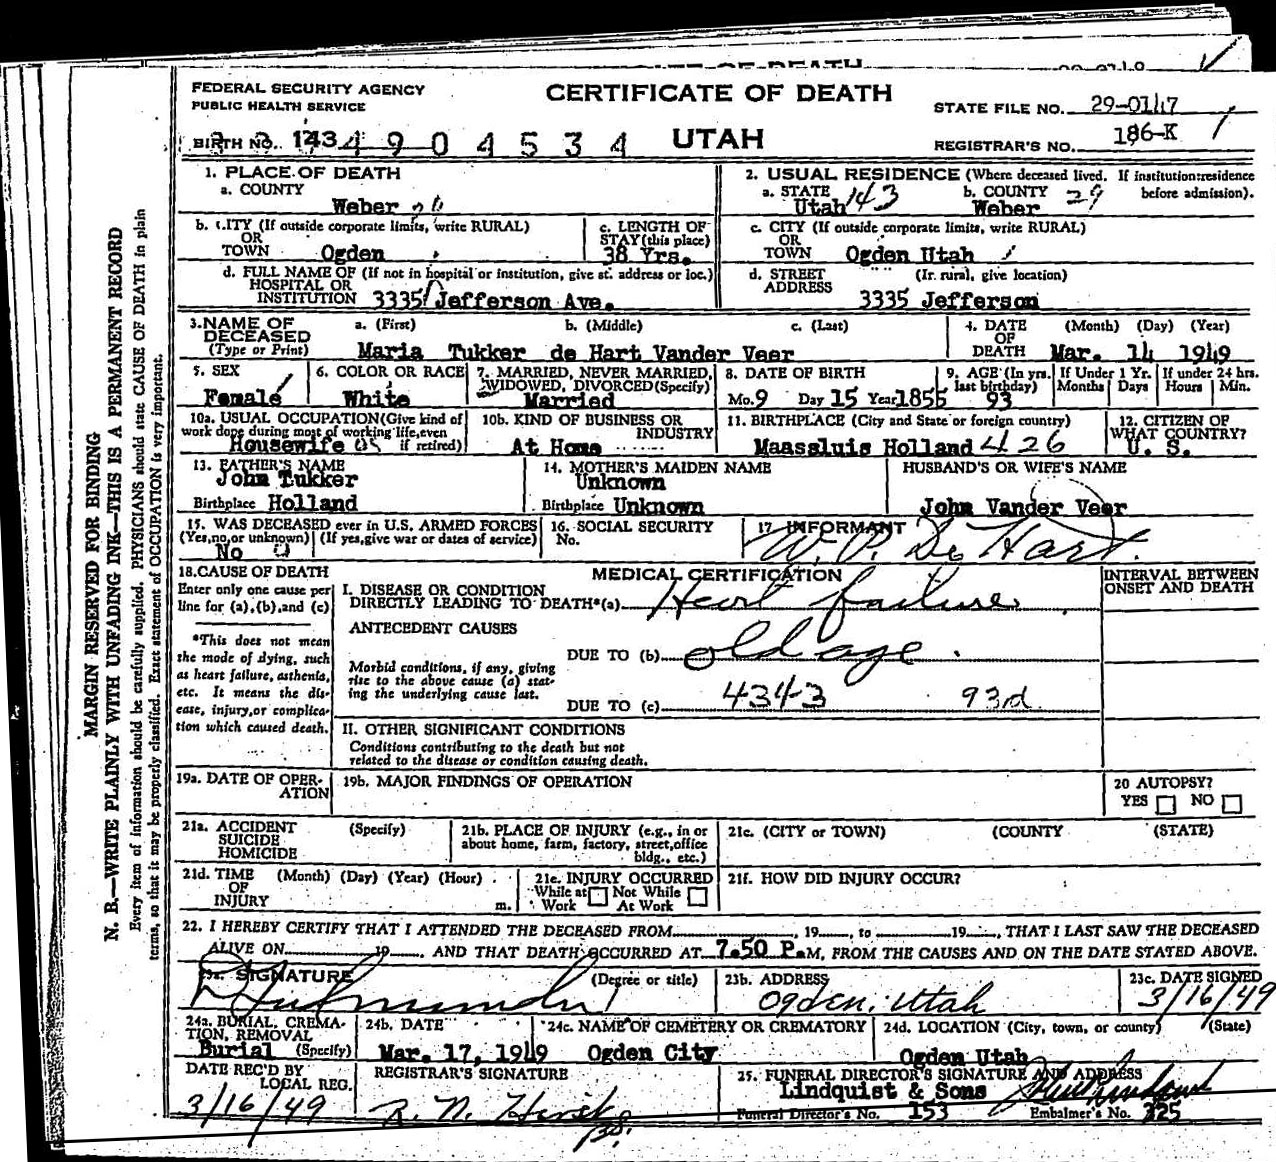 FEDERAL SECURITY AGENCY
PUBLIC HEALTH SERVICE
CERTIFICATE OF DEATH
STATE FILE NO. 29-0147
BIRTH NO. 143 4 9 0 4 5 3 4
UTAH
REGISTRAR'S NO. 186-K
1. PLACE OF DEATH
a. COUNTY
Weber
2. USUAL RESIDENCE (Where deceased lived. If institution:residence before admission).
a. STATE Utah 143
b. COUNTY Weber 29
b. CITY (If outside corporate limits, write RURAL)
OR
TOWN Ogden
c. LENGTH OF
STAY (this place)
38 Yrs.
c. CITY (If outside corporate limits, write RURAL)
OR
TOWN Ogden Utah
d. FULL NAME OF (If not in hospital or institution, give st. address or loc.)
HOSPITAL OR
INSTITUTION 3335 Jefferson Ave.
d. STREET (If rural, give location)
ADDRESS 3335 Jefferson
3. NAME OF
DECEASED
(Type or Print)
a. (First) b. (Middle) c. (Last)
Maria Tukker de Hart Vander Veer
4. DATE
OF
DEATH
(Month) (Day) (Year)
Mar. 14 1949
5. SEX
Female
6. COLOR OR RACE
White
7. MARRIED, NEVER MARRIED,
WIDOWED, DIVORCED (Specify)
Married
8. DATE OF BIRTH
Mo. 9 Day 15 Year 1855
9. AGE (In yrs.
last birthday)
93
If Under 1 Yr.
Months Days
If under 24 hrs.
Hours Min.
10a. USUAL OCCUPATION (Give kind of
work done during most of working life, even
if retired)
Housewife
10b. KIND OF BUSINESS OR
INDUSTRY
At Home
11. BIRTHPLACE (City and State or foreign country)
Maassluis Holland 426
12. CITIZEN OF
WHAT COUNTRY?
U. S.
13. FATHER'S NAME
John Tukker
Birthplace Holland
14. MOTHER'S MAIDEN NAME
Unknown
Birthplace Unknown
HUSBAND'S OR WIFE'S NAME
John Vander Veer
15. WAS DECEASED ever in U.S. ARMED FORCES
(Yes, no, or unknown) (If yes, give war or dates of service)
No 0
16. SOCIAL SECURITY
No.
17 INFORMANT
W. P. De Hart.
18. CAUSE OF DEATH
Enter only one cause per
line for (a), (b), and (c)
*This does not mean
the mode of dying, such
as heart failure, asthenia,
etc. It means the dis-
ease, injury, or complica-
tion which caused death.
MEDICAL CERTIFICATION
INTERVAL BETWEEN
ONSET AND DEATH
I. DISEASE OR CONDITION
DIRECTLY LEADING TO DEATH*(a) Heart failure
ANTECEDENT CAUSES
DUE TO (b) old age.
Morbid conditions, if any, giving
rise to the above cause (a) stat-
ing the underlying cause last.
DUE TO (c) 4343 93d
II. OTHER SIGNIFICANT CONDITIONS
Conditions contributing to the death but not
related to the disease or condition causing death.
19a. DATE OF OPER-
ATION
19b. MAJOR FINDINGS OF OPERATION
20 AUTOPSY?
YES NO
21a. ACCIDENT (Specify)
SUICIDE
HOMICIDE
21b. PLACE OF INJURY (e.g., in or
about home, farm, factory, street, office
bldg., etc.)
21c. (CITY or TOWN) (COUNTY (STATE)
21d. TIME (Month) (Day) (Year) (Hour)
OF
INJURY m.
21e. INJURY OCCURRED
While at Work
Not While At Work
21f. HOW DID INJURY OCCUR?
22. I HEREBY CERTIFY THAT I ATTENDED THE DECEASED FROM , 19 , to 19 , THAT I LAST SAW THE DECEASED
ALIVE ON 19 , AND THAT DEATH OCCURRED AT 7.50 P.M, FROM THE CAUSES AND ON THE DATE STATED ABOVE.
SIGNATURE (Degree or title)
23b. ADDRESS
Ogden, Utah
23c. DATE SIGNED
3/16/49
24a. BURIAL, CREMA-
TION, REMOVAL
Burial (Specify)
24b. DATE
Mar. 17, 1949
24c. NAME OF CEMETERY OR CREMATORY
Ogden City
24d. LOCATION (City, town, or county) (State)
Ogden Utah
DATE REC'D BY
LOCAL REG.
3/16/49
REGISTRAR'S SIGNATURE
25. FUNERAL DIRECTOR'S SIGNATURE AND ADDRESS
Lindquist & Sons
Funeral Director's No. 153
Embalmer's No. 325
MARGIN RESERVED FOR BINDING
N. B.—WRITE PLAINLY WITH UNFADING INK—THIS IS A PERMANENT RECORD
Every item of information should be carefully supplied. PHYSICIANS should state CAUSE OF DEATH in plain
terms, so that it may be properly classified. Exact statement of OCCUPATION is very important.